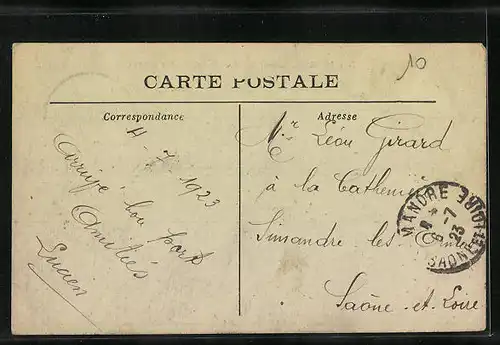 10
CARTE POSTALE
Correspondance
Adresse
4 - 7 1923
Arrivé bon port
Amitiés
Lucien
Mr Léon Girard
à la
Simandre les
Saône-et-Loire
MANDRE
8-7
23
SAONE
LOIRE